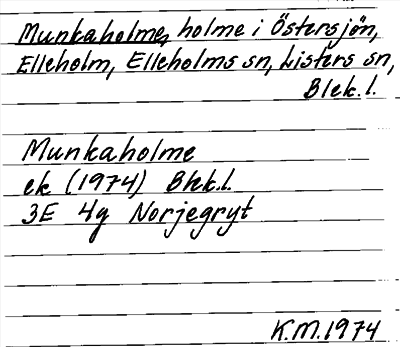 Munkaholme, holme i Östersjön,
Elleholm, Elleholms sn, Listers sn,
Blek.l.
Munkaholme
ek (1974) Blek.l.
3E 4g Norjegryt
K.M.1974